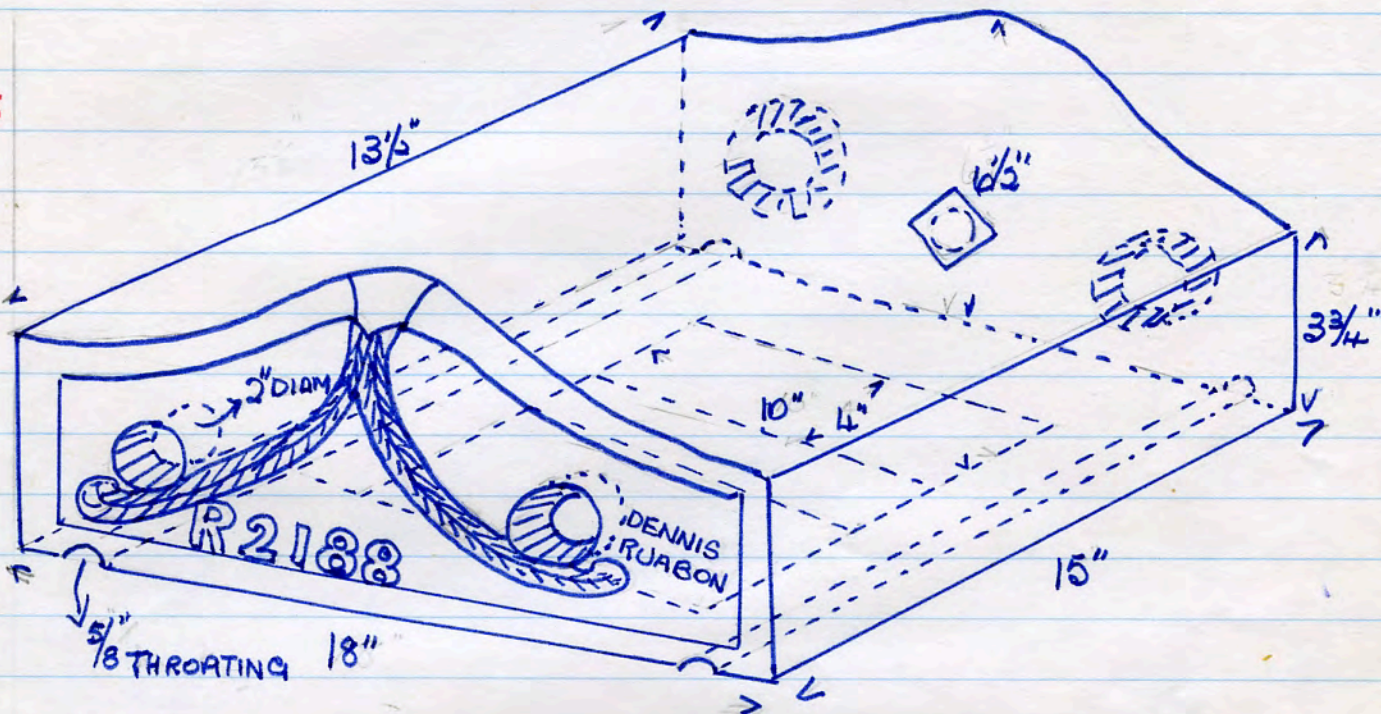 13½"
6½"
3¾"
2" DIAM
10"
4"
R2188
DENNIS
RUABON
15"
5/8" THROATING
18"